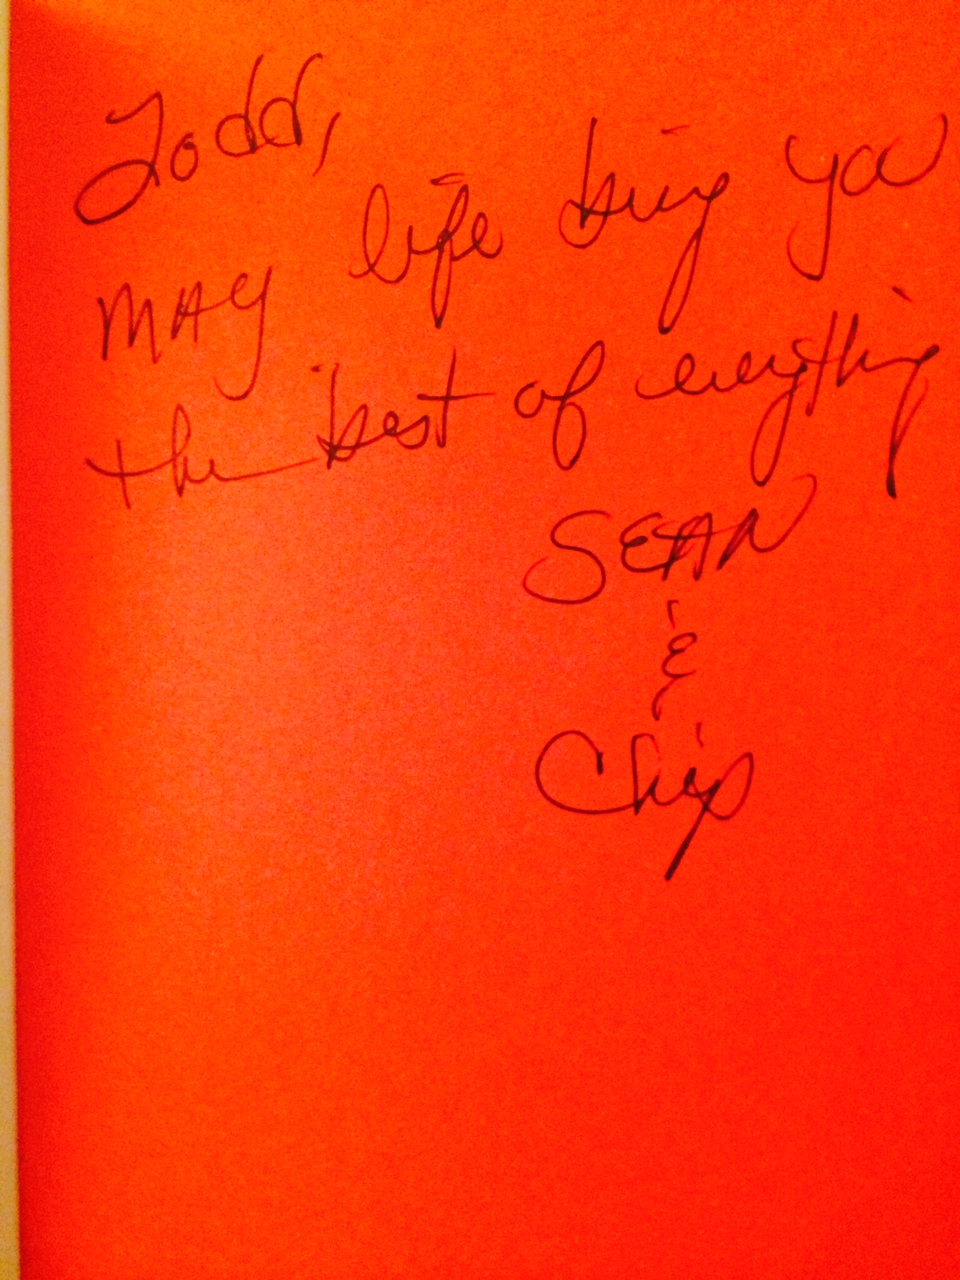 Todd,
May life bring you
the best of everything
SEAN
&
Chip